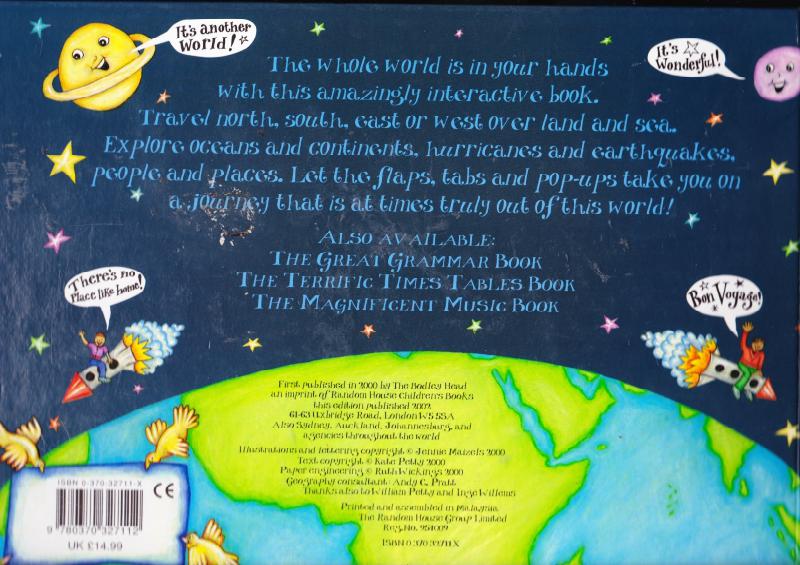 It's another
World!
It's
Wonderful!
The whole world is in your hands
with this amazingly interactive book.
Travel north, south, east or west over land and sea.
Explore oceans and continents, hurricanes and earthquakes,
people and places. Let the flaps, tabs and pop-ups take you on
a journey that is at times truly out of this world!
Also available:
The Great Grammar Book
The Terrific Times Tables Book
The Magnificent Music Book
There's no
Place like home!
Bon Voyage!
First published in 2000 by The Bodley Head
an imprint of Random House Children's Books
this edition published 2002
61-63 Uxbridge Road, London W5 5SA
Also Sydney, Auckland, Johannesburg, and
agencies throughout the world
Illustrations and lettering copyright © Jennie Maizels 2000
Text copyright © Kate Petty 2000
Paper engineering © Ruth Wickings 2000
Geography consultant: Andy C. Pratt
Thanks also to William Petty and Inge Willems
Printed and assembled in Malaysia
The Random House Group Limited
Reg. No. 954009
ISBN 0 370 32711 X
ISBN 0-370-32711-X
CE
9 780370 327112
UK £14.99